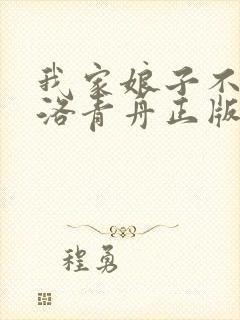 我家娘子不
洛青丹正版
程勇